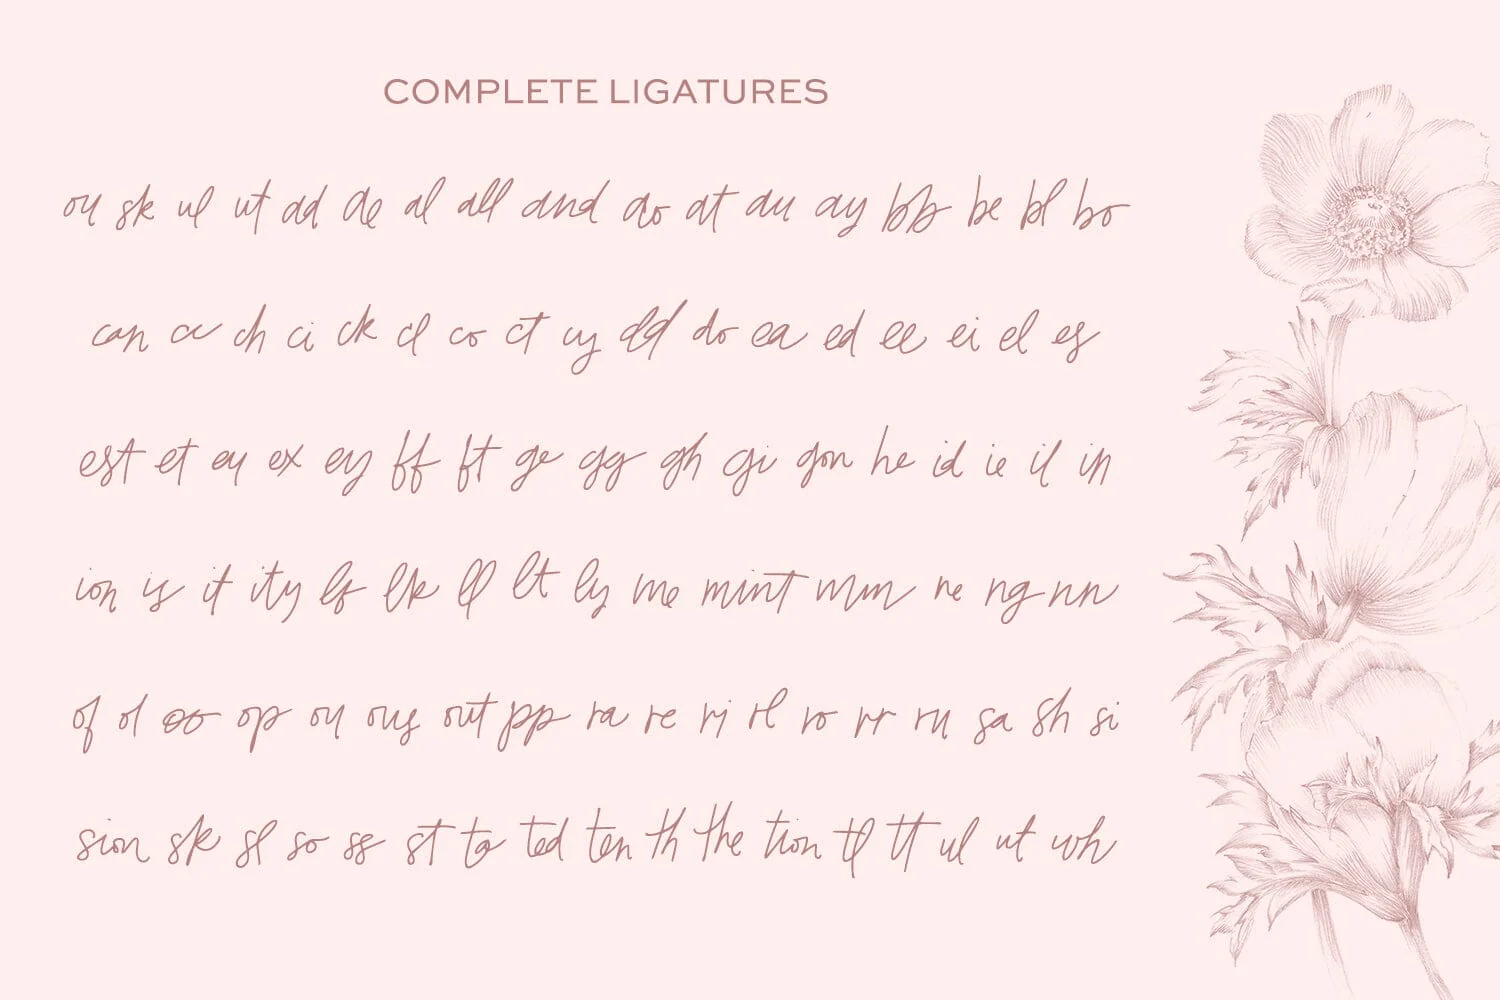 COMPLETE LIGATURES
ou sk ul ut ad de al all and ao at au ay bb be bl bo
can ce ch ci ck cl co ct cy dd do ea ed ee ei el es
est et eu ex ey ff ft ge gg gh gi gon he id ie il in
ion is it ity lf lk ll lt ly me mint mm ne ng nn
of ol oo op ou ous out pp ra re ri rl ro rr ru sa sh si
sion sk sl so ss st to ted ten th the tion tl tt ul ut wh